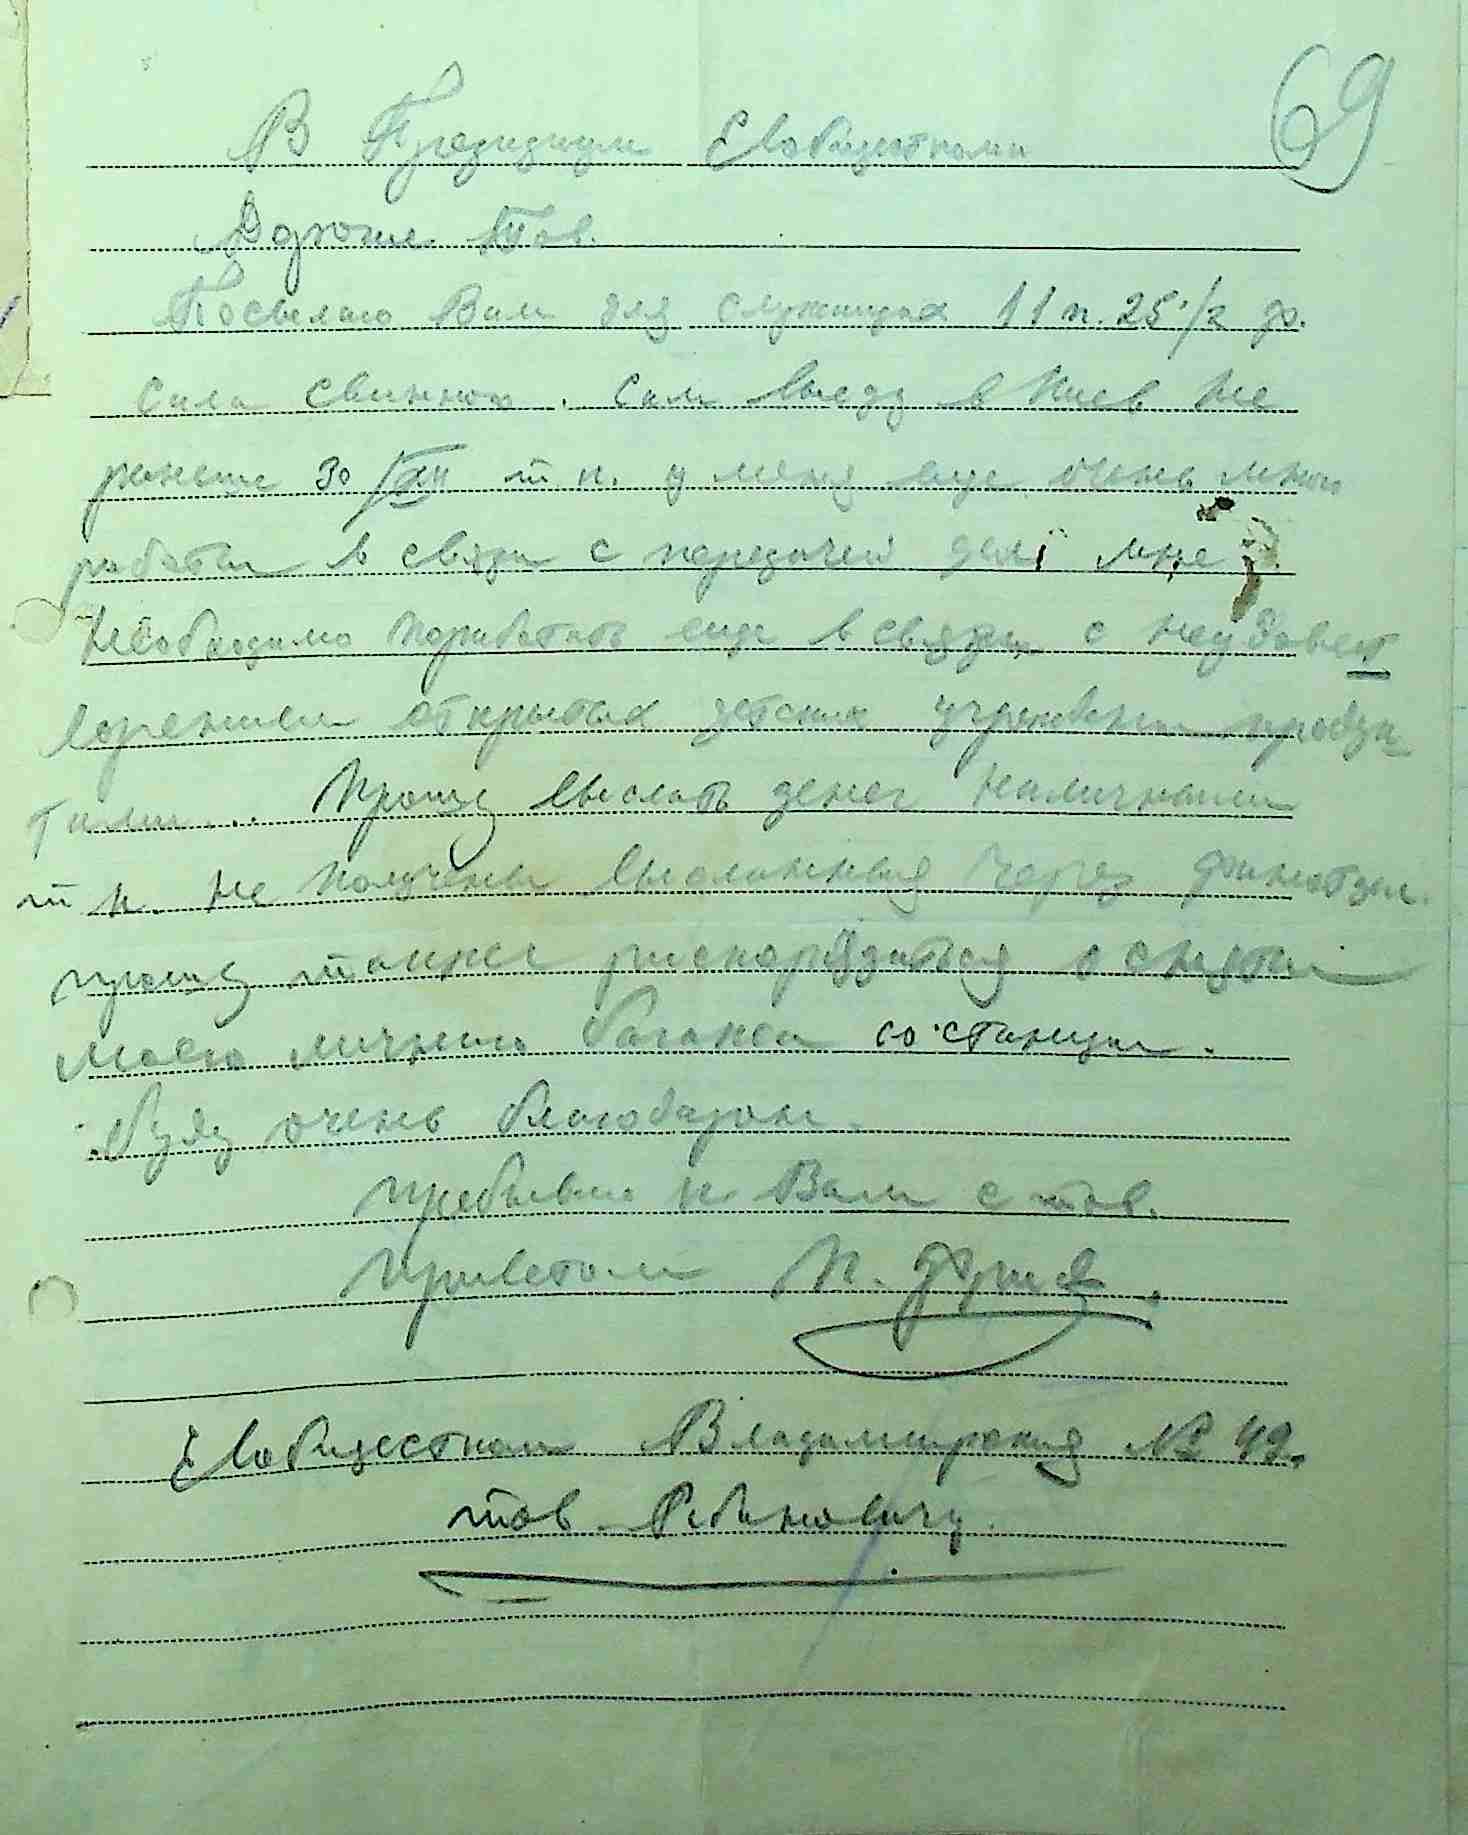 69
В Президиум Евобщесткома
Дорогие Тов.
Посылаю Вам для служащих 11 п. 25 1/2 ф.
Сала свинного. Сам выеду в Киев не
раньше 30/XII т. к. у меня еще очень много
работы в связи с передачей дел, мне
необходимо поработать еще в связи с неудовлет
ворением открытых детских учреждений продук
тами... Прошу выслать денег наличными
т. к. не получены высланные через финотдел.
прошу также распорядиться о снятии
моего личного багажа со станции.
Буду очень благодарен.
пребываю к Вам с тов.
приветом
Евобщестком Владимирская № 49.
тов. Рабиновичу.